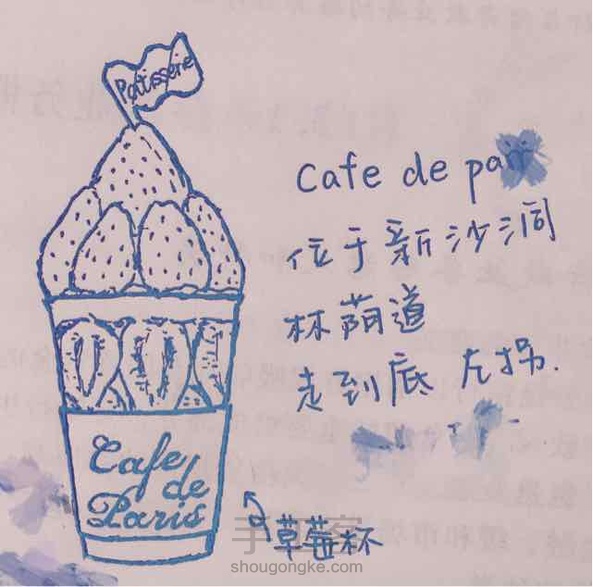 Patisserie
Cafe de pari
位于新沙洞
林荫道
走到底 左拐.
Cafe
de
Paris
草莓杯
shougongke.com